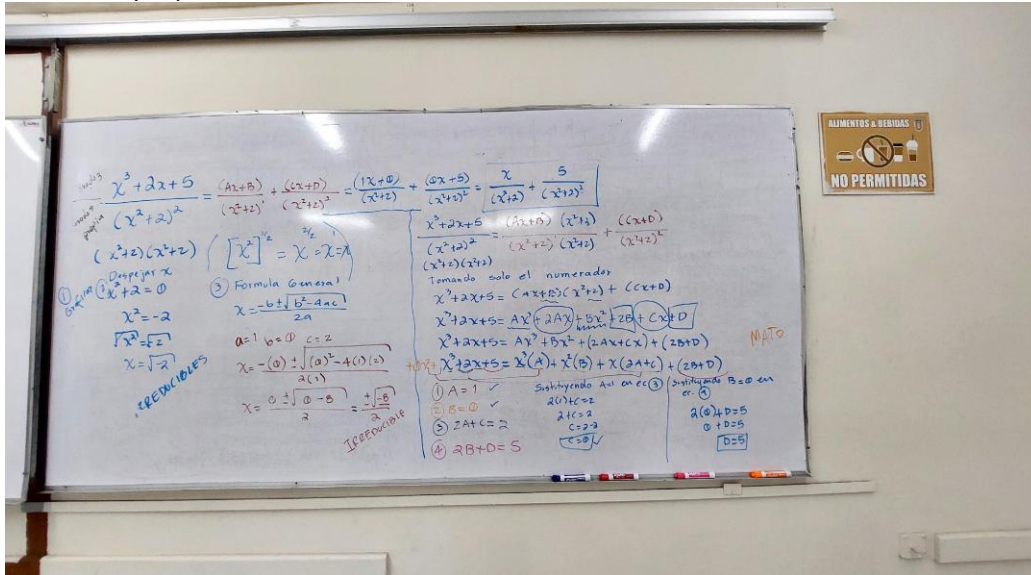 x³+2x+5/(x²+2)² = (Ax+B)/(x²+2)¹ + (Cx+D)/(x²+2)² = (1x+0)/(x²+2) + (0x+5)/(x²+2)² = x/(x²+2) + 5/(x²+2)²
(x²+2)(x²+2)
([x²]^1/2 = x^2/2 = x¹ = x)
① Gráficar
② Despejar x
x²+2=0
x²=-2
√x²=√-2
x=√-2
IRREDUCIBLES
③ Formula General
x = -b±√b²-4ac/2a
a=1 b=0 c=2
x = -(0)±√(0)²-4(1)(2)/2(1)
x = 0±√0-8/2 = ±√-8/2
IRREDUCIBLE
x³+2x+5/(x²+2)² = (Ax+B)(x²+2)/(x²+2)(x²+2) + (Cx+D)/(x²+2)²
(x²+2)(x²+2)
Tomando solo el numerador
x³+2x+5 = (Ax+B)(x²+2) + (Cx+D)
x³+2x+5 = Ax³+2Ax+Bx²+2B+Cx+D
x³+2x+5 = Ax³+Bx²+(2Ax+Cx)+(2B+D)
+0x²+ x³+2x+5 = x³(A)+x²(B)+x(2A+C)+(2B+D)
MATO
① A=1 ✓
② B=0 ✓
③ 2A+C=2
④ 2B+D=5
Sustituyendo A=1 en ec ③
2(1)+C=2
2+C=2
C=2-2
C=0 ✓
Sustituyendo B=0 en
ec. ④
2(0)+D=5
0+D=5
D=5
ALIMENTOS & BEBIDAS
NO PERMITIDAS